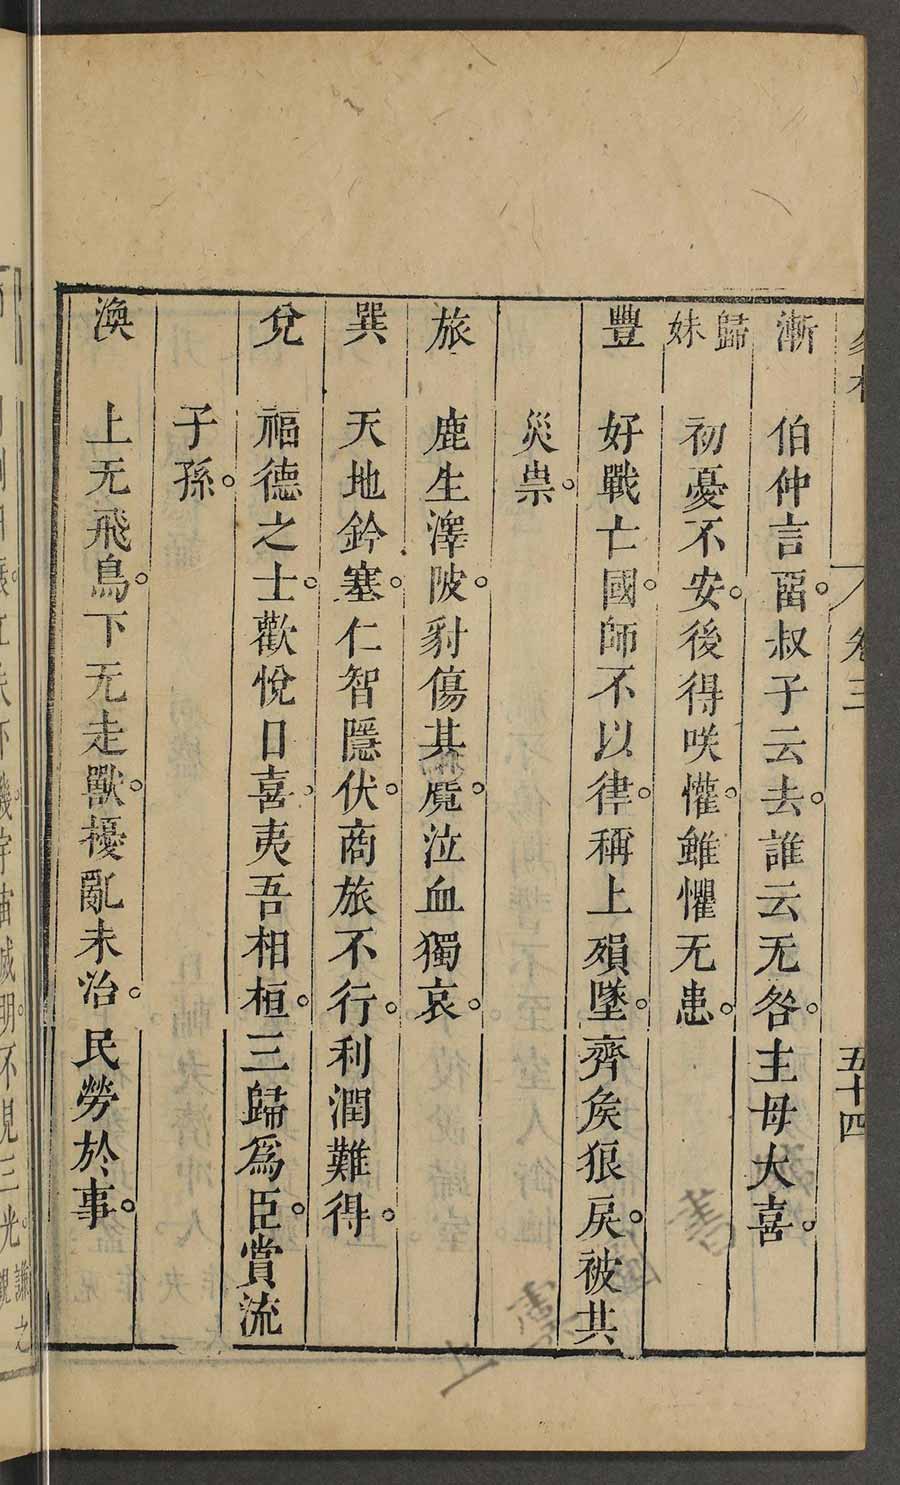 卷三
五十四
漸 伯仲言畱。叔子云去。誰云无咎。主母大喜。
歸妹 初憂不安。後得咲懽。雖懼无患。
豐 好戰亡國。師不以律。稱上殞墜。齊矦狠戾。被其
災祟。
旅 鹿生澤陂。豺傷其麑。泣血獨哀。
巽 天地鈐塞。仁智隱伏。商旅不行。利潤難得。
兌 福德之士。歡悅日喜。夷吾相桓。三歸爲臣。賞流
子孫。
渙 上无飛鳥。下无走獸。擾亂未治。民勞於事。